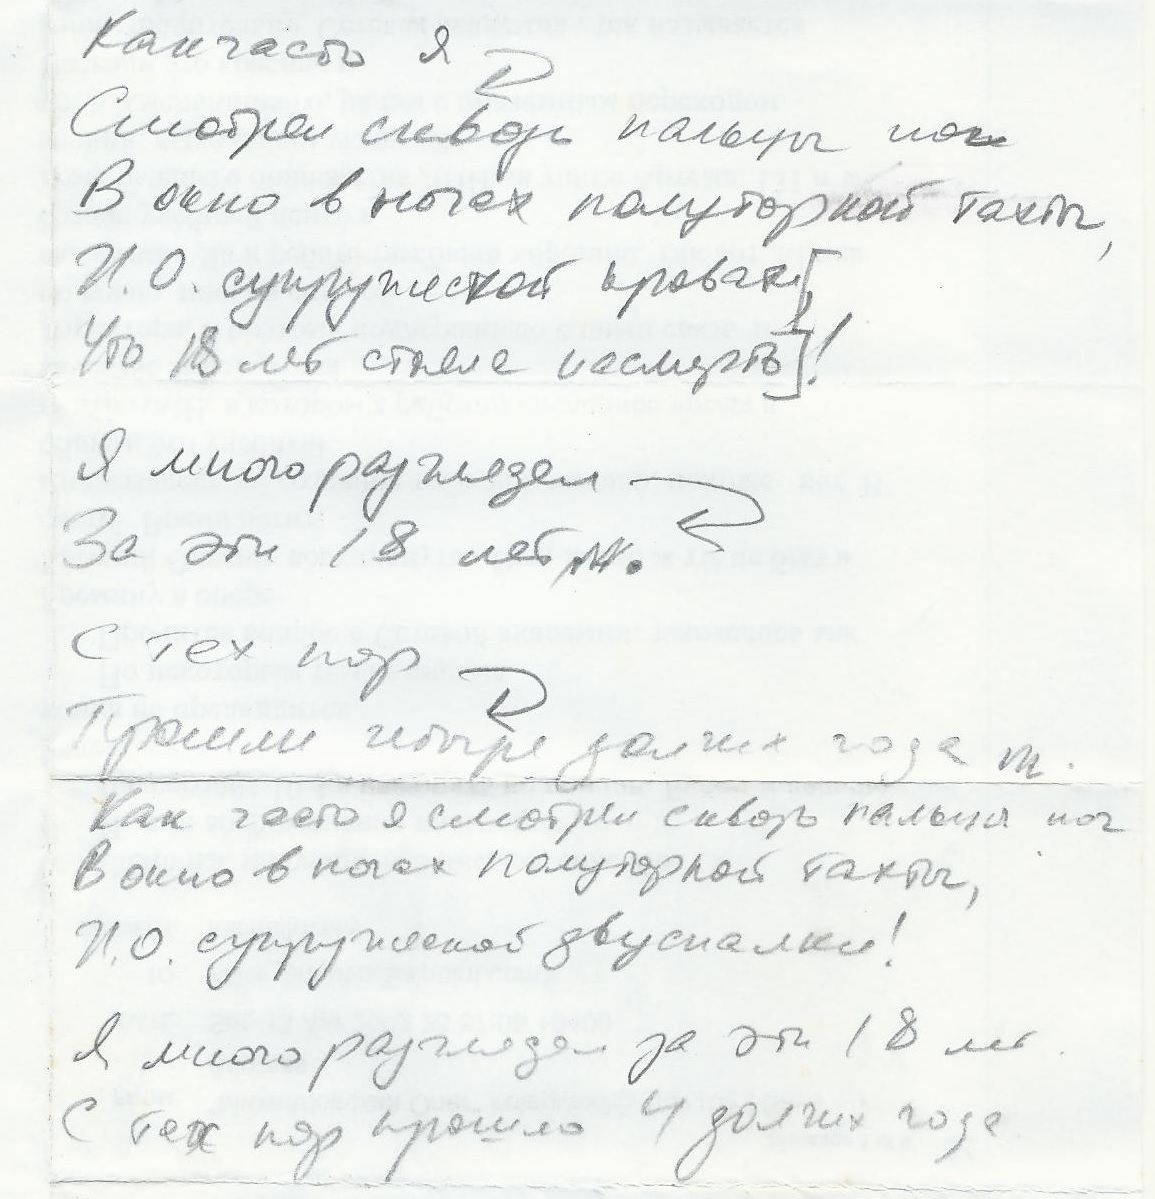 Как часто я
Смотрел сквозь пальцы ног
В окно в ногах полуторной тахты,
И.О. супружеской кровати,
Что 18 лет стояла насмерть!
Я много разглядел
За эти 18 лет
С тех пор
Прошли четыре долгих года
Как часто я смотрел сквозь пальцы ног
В окно в ногах полуторной тахты,
И.О. супружеской двуспалки!
Я много разглядел за эти 18 лет.
С тех пор прошло 4 долгих года